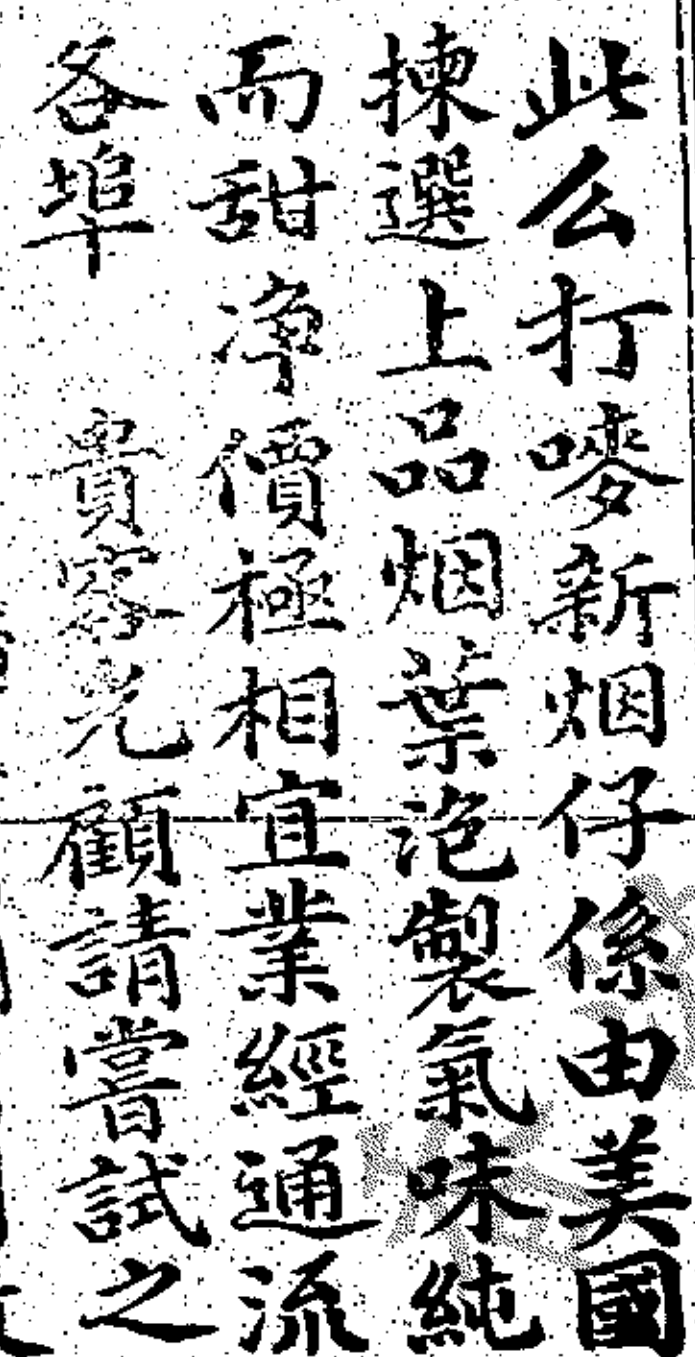 此么打嘜新烟仔係由美國
揀選上品烟葉泡製氣味純
而甜淨價極相宜業經通流
各埠　貴客光顧請嘗試之